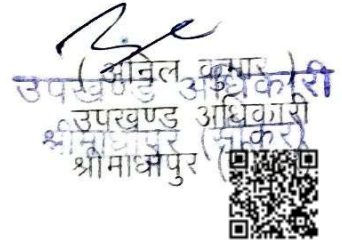 ( अनिल कुमार )
उपखण्ड अधिकारी
उपखण्ड अधिकारी
श्रीमाधोपुर (सीकर)
श्रीमाधोपुर (